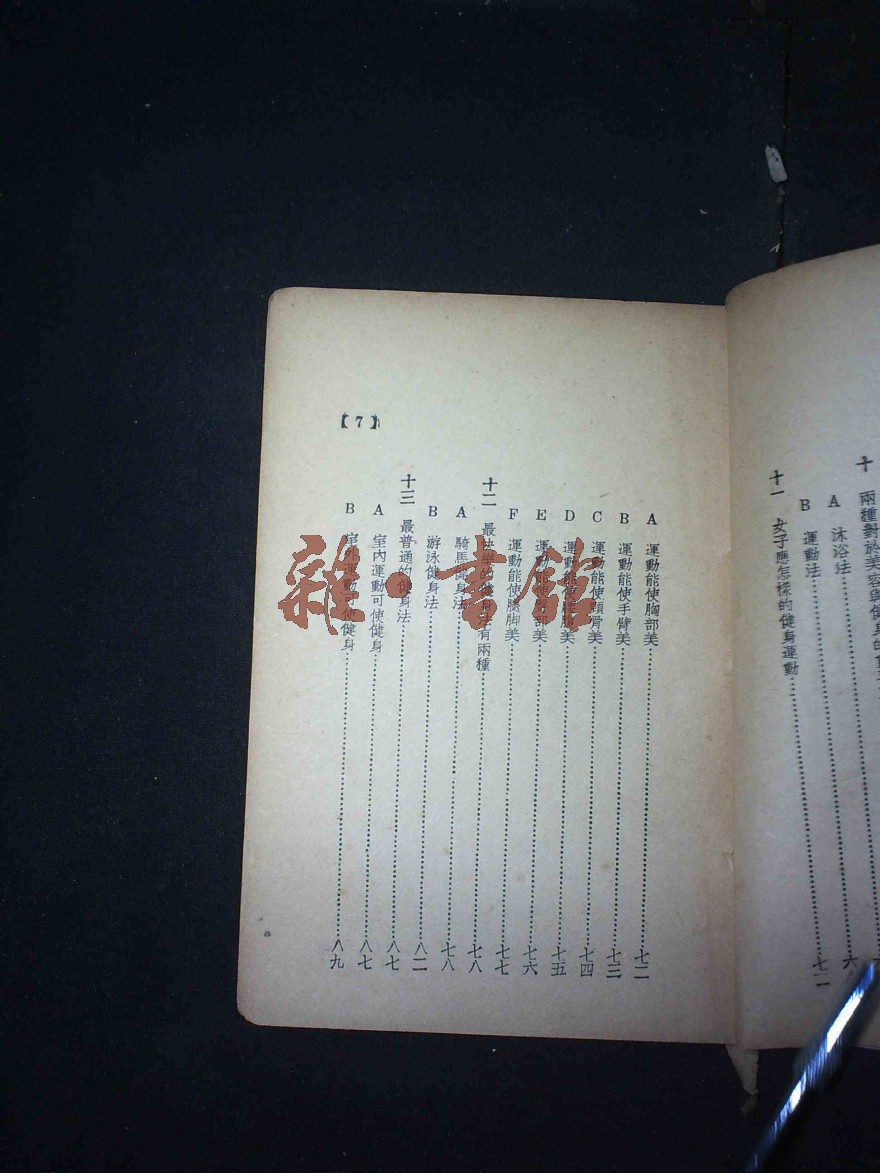 十 兩種對於美容與健身的
A 沐浴法 六
B 運動法
十一 女子應怎樣的健身運動 七二
【7】
A 運動能使胸部美 七二
B 運動能使手臂美 七三
C 運動能使頸骨美 七四
D 運動能使 脚美 七五
E 運動能使 部美 七六
F 運動能使腿脚美 七七
十二 最 的健身法有兩種 七八
A 騎馬健身法 七八
B 游泳健身法 八二
十三 最普通的健身法 八七
A 室內運動可使健身 八七
B 室外運動可使健身 八九
雜·書館